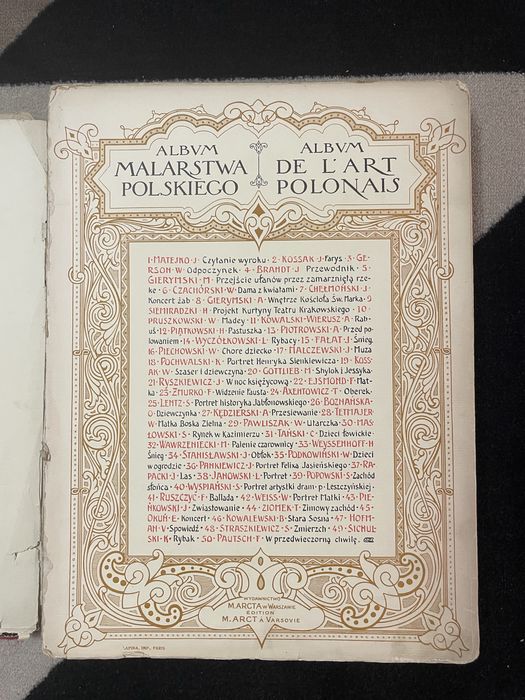 ALBVM
MALARSTWA
POLSKIEGO
ALBVM
DE L'ART
POLONAIS
1·MATEJKO·J· Czytanie wyroku· 2·KOSSAK·J·Farys· 3·GE-
RSON·W·Odpoczynek· 4·BRANDT·J· Przewodnik· 5·
GIERYMSKI·M· Przejście ułanów przez zamarzniętą rze-
kę· 6·CZACHÓRSKI·W·Dama z kwiatami· 7·CHEŁMOŃSKI·J·
Koncert żab· 8·GIERYMSKI·A·Wnętrze Kościoła Św. Marka· 9
SIEMIRADZKI·H· Projekt Kurtyny Teatru Krakowskiego· 10·
PRUSZKOWSKI·W· Madey· 11·KOWALSKI-WIERUSZ·A· Rab-
uś·12·PIĄTKOWSKI·H·Pastuszka· 13·PIOTROWSKI·A·Przed po-
lowaniem·14·WYCZÓŁKOWSKI·L· Rybacy· 15·FAŁAT·J·Śnieg.
16·PIECHOWSKI·W· Chore dziecko· 17·MALCZEWSKI·J· Muza
18·POCHWALSKI·K· Portret Henryka Sienkiewicza· 19·KOSS-
AK·W· Szaser i dziewczyna· 20·GOTTLIEB·M· Shylok i Jessyka·
21·RYSZKIEWICZ·J·W noc księżycową· 22·EJSMOND·F·Mat-
ka· 23·ŻMURKO·F·Widzenie Fausta· 24·AXENTOWICZ·T·Oberek·
25·LENTZ·S·Portret historyka Jabłonowskiego· 26·BOZNAŃSKA·
O·Dziewczynka· 27·KĘDZIERSKI·A·Przesiewanie· 28·TETMAJER·
W·Matka Boska Zielna· 29·PAWLISZAK·W·Utarczka· 30·MAS-
ŁOWSKI·S·Rynek w Kazimierzu· 31·TAŃSKI·C·Dzieci łowickie·
32·WAWRZENIECKI·M·Palenie czarownicy· 33·WEYSSENHOFF·H·
Śnieg· 34·STANISŁAWSKI·J·Obłok· 35·PODKOWIŃSKI·W·Dzieci
w ogrodzie· 36·PANKIEWICZ·J·Portret Feliksa Jasieńskiego· 37·RA-
PACKI·J·Las· 38·JANOWSKI·L·Portret· 39·POPOWSKI·S·Zachód
słońca· 40·WYSPIAŃSKI·S·Portret artystki dram·p·Leszczyńskiej·
41·RUSZCZYC·F·Ballada· 42·WEISS·W·Portret Matki· 43·PIE-
ŃKOWSKI·J·Zwiastowanie· 44·ZIOMEK·T·Zimowy zachód· 45·
OKUŃ·E·Koncert· 46·KOWALEWSKI·B·Stara Sosna· 47·HOFM-
AN·V·Spowiedź· 48·STRASZKIEWICZ·S·Zmierzch· 49·SICHUL-
SKI·K·Rybak· 50·PAUTSCH·F·W przedwieczorną chwilę·
WYDAWNICTWO
M.ARCTA w WARSZAWIE
EDITION
M.ARCT à VARSOVIE
LAPINA, IMP., PARIS